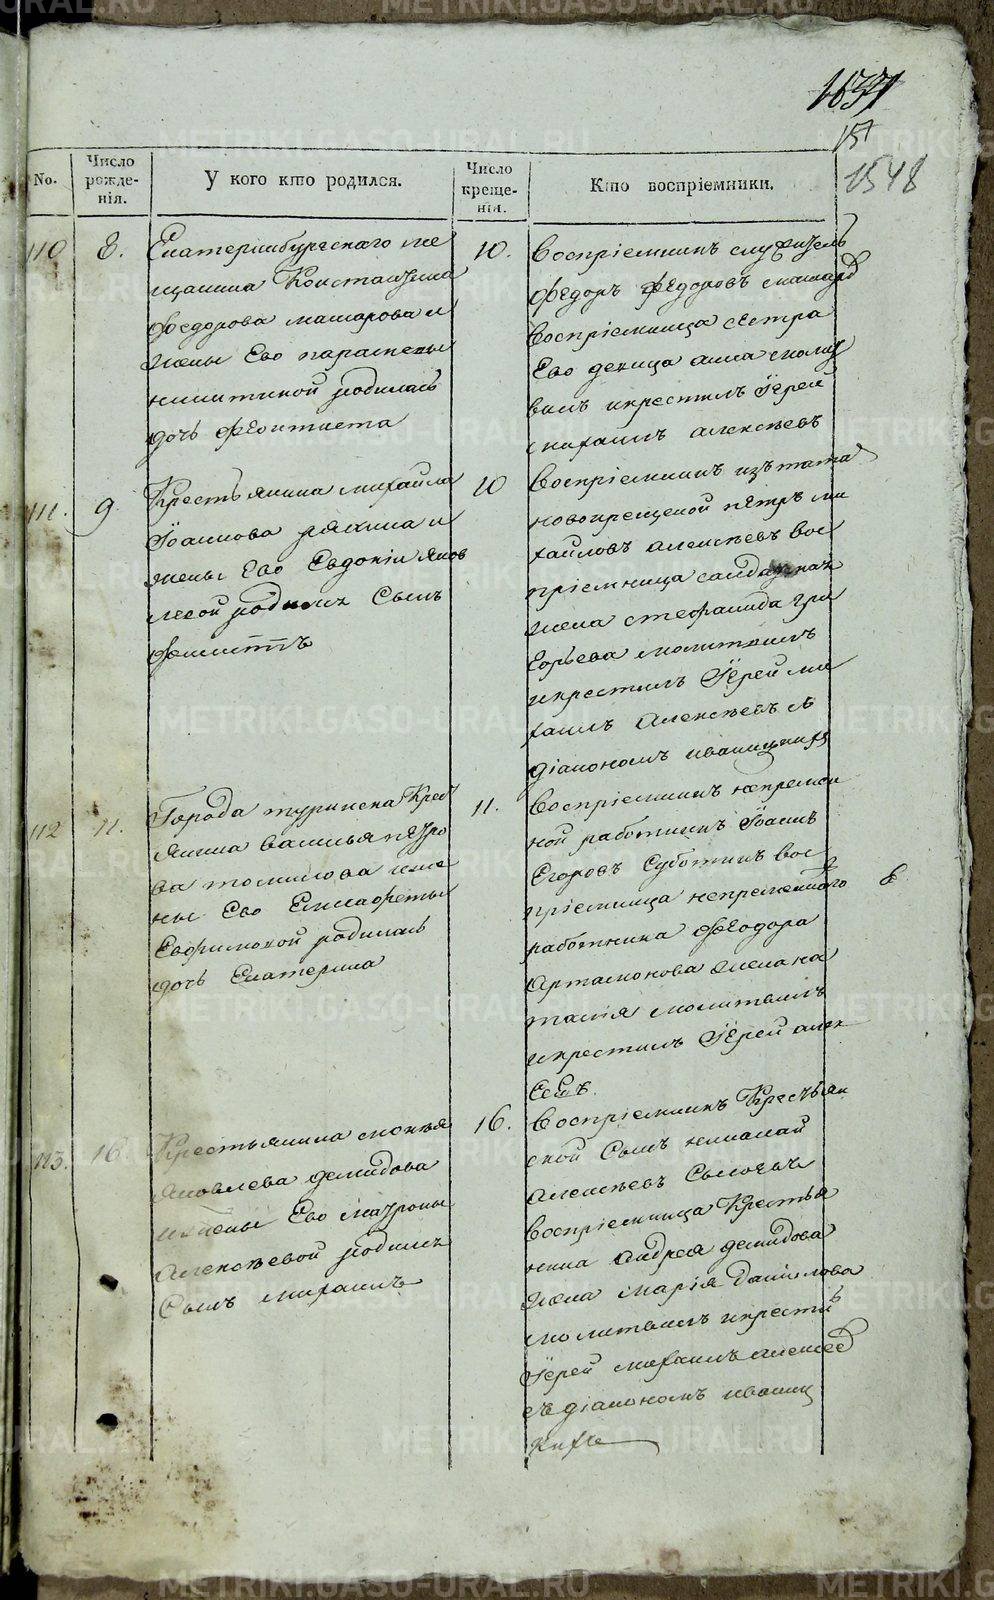 1548
No.
Число рожде-
нія.
У кого кто родился.
Число креще-
нія.
Кто воспріемники.
110
8.
Екатеринбургскаго ме
щанина Константина
Федорова макарова и
жены Ево парасковьи
никитиной родилась
дочь Феоктиста
10.
Воспріемникъ служитель
Федоръ Федоровъ
воспріемница сестра
Ево девица анна молит
вилъ икрестилъ Іерей
михаилъ алексѣевъ
111.
9
Крестьянина михайла
Іоаннова и
жены Ево Евдокіи яков
левой родился Сынъ
10
Воспріемникъ изъ тата
новокрещеной пётръ ми
хайловъ алексѣевъ вос
пріемница
жена стефанида гри
горьева молитвилъ
икрестилъ Іерей ми
хаилъ Алексѣевъ съ
діакономъ иваницкихъ
112
11.
Города туринска Крес
янина василья пётро
ва томилова и же
ны Ево Елисафеты
Евфимовой родилась
дочь Екатерина
11.
Воспріемникъ непремен
ной работникъ Іоаннъ
Егоровъ Суботинъ вос
пріемница непременного
работника Феодора
Артамонова жена на
талія молитвилъ
икрестилъ Іерей алек
сеевъ.
113.
16.
Крестьянина мокѣя
яковлева демидова
и жены Ево матроны
алексѣевой родился
Сынъ михаилъ
16.
Воспріемникъ Крестьян
ской Сынъ николай
алексѣевъ
воспріемница Крестья
нина андрея демидова
жена марія данилова
молитвилъ икрестилъ
Іерей михаилъ алексеев
съ діакономъ иваниц
кихъ
METRIKI.GASO-URAL.RU